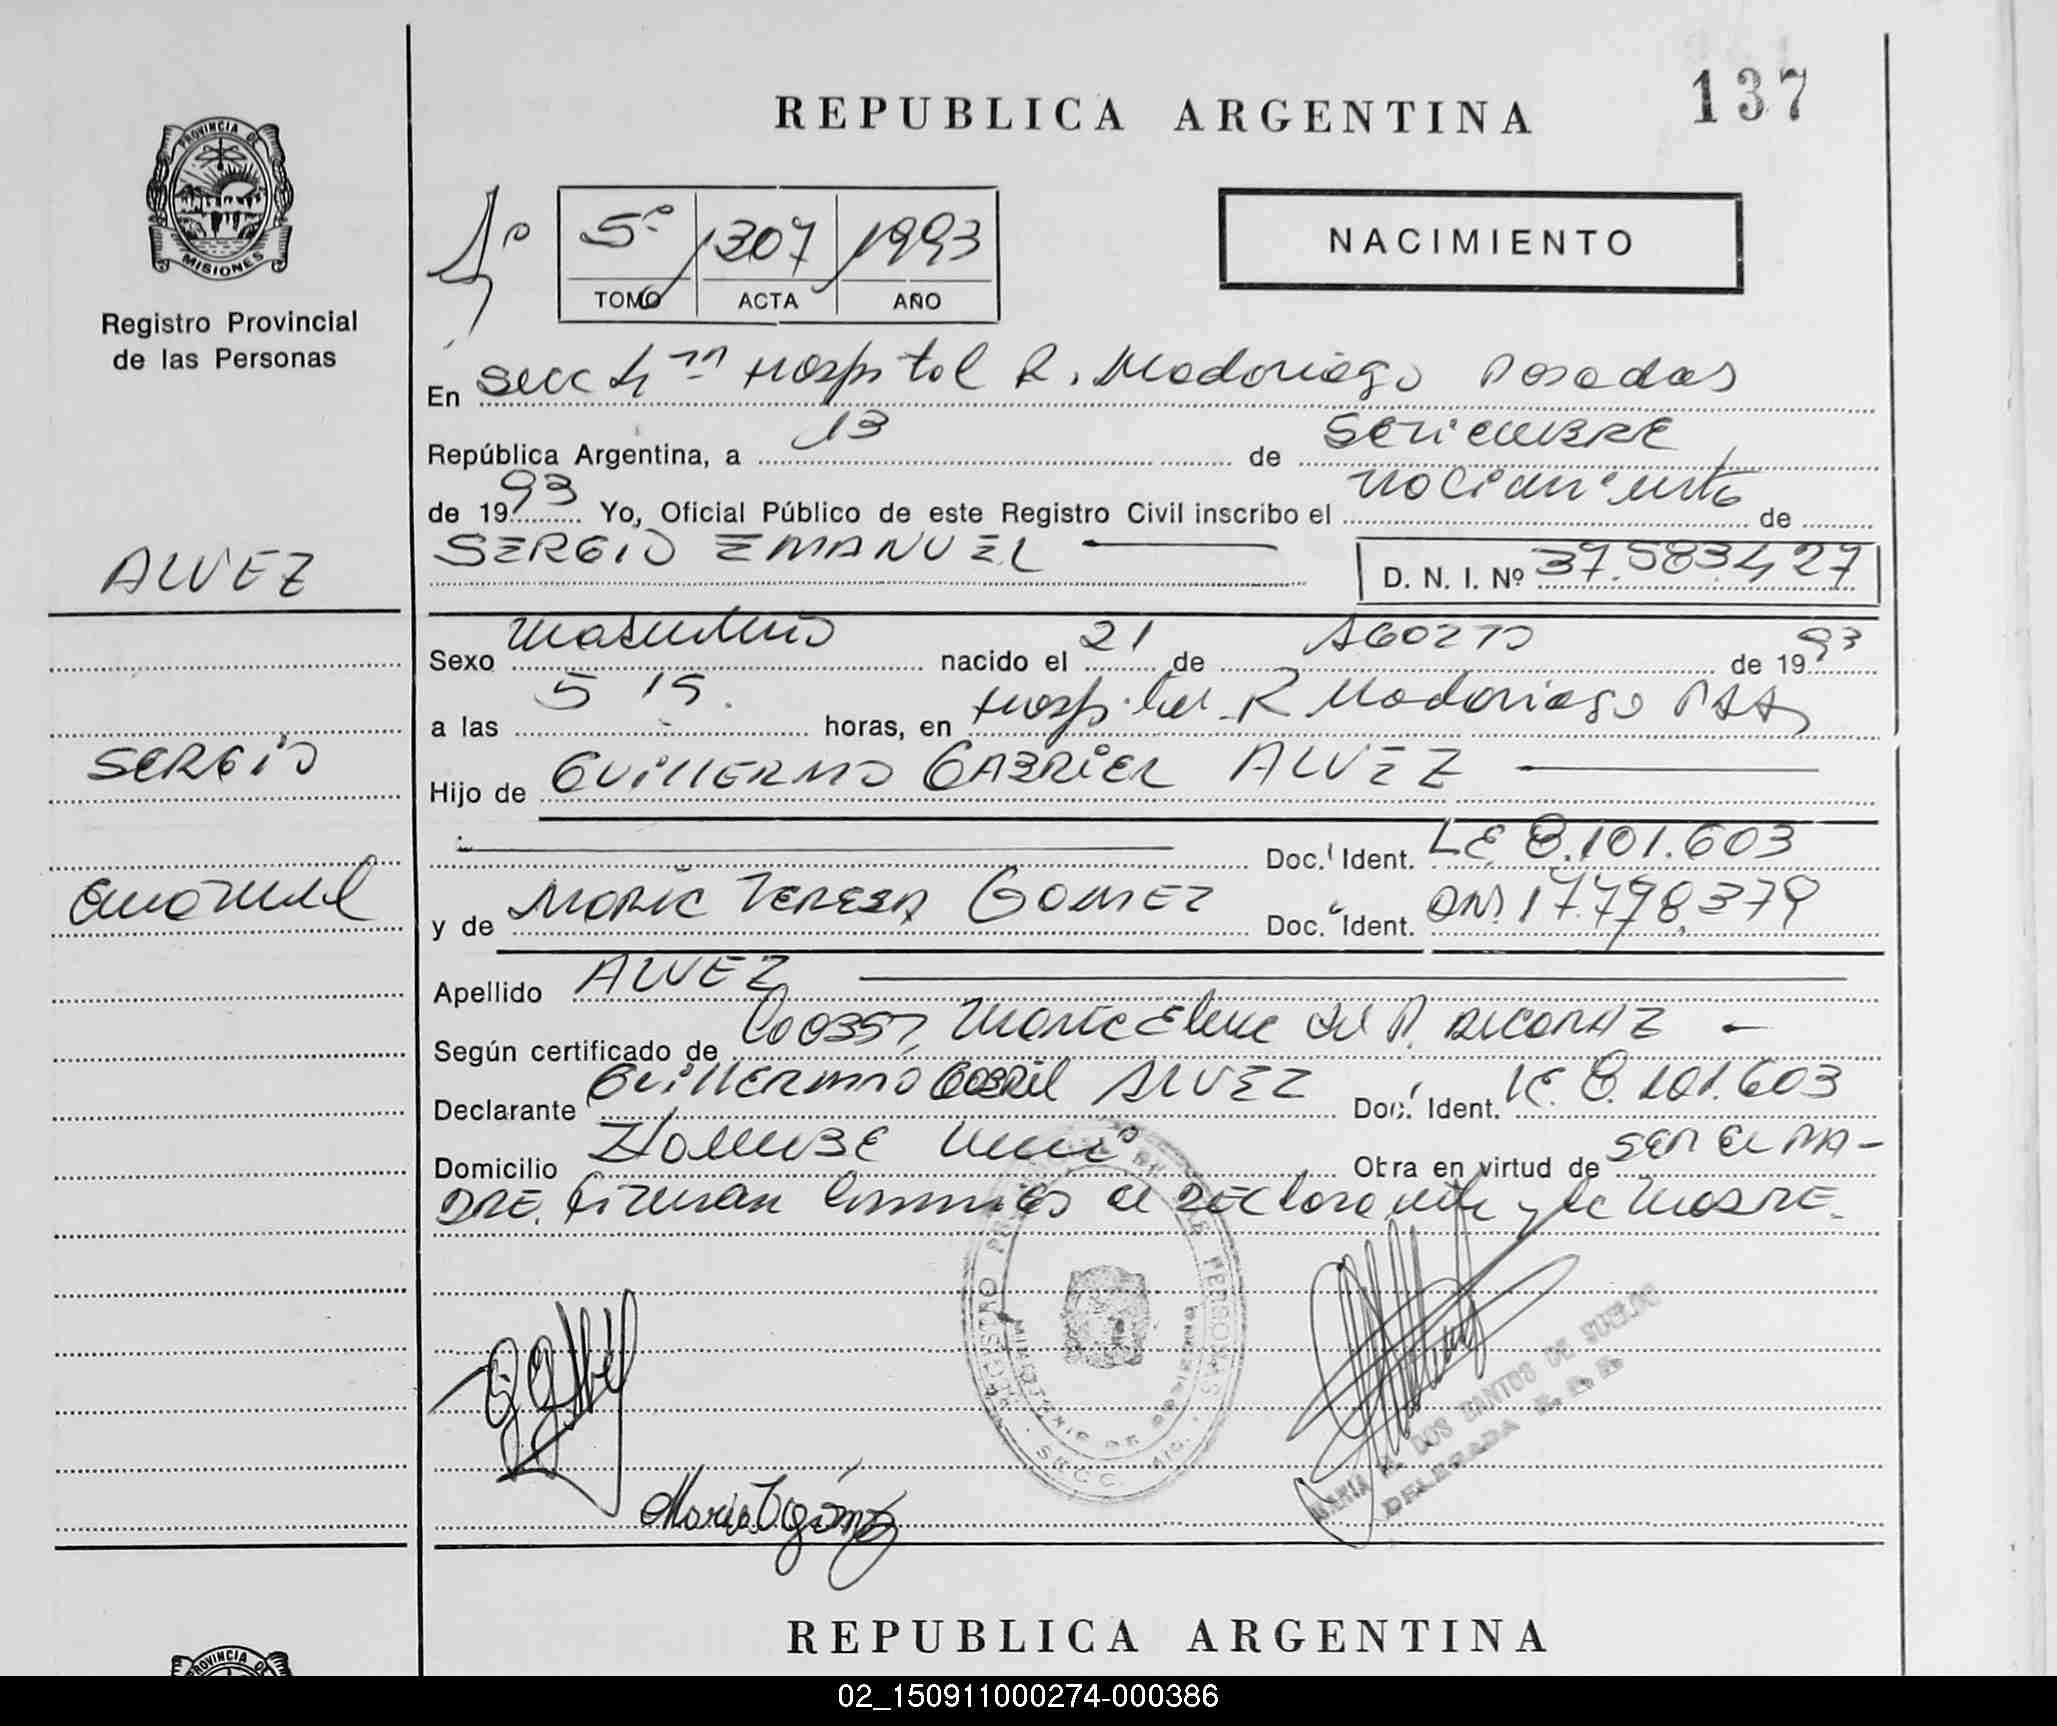 137
REPUBLICA ARGENTINA
PROVINCIA DE
MISIONES
Registro Provincial
de las Personas
1º
5º 1307 1993
TOMO ACTA AÑO
NACIMIENTO
En Secc 4ta Hospital R. Madariaga Posadas
República Argentina, a 13 de SETIEMBRE
de 1993 Yo, Oficial Público de este Registro Civil inscribo el nacimiento de
ALVEZ
SERGIO EMANUEL
D. N. I. Nº 37.583427
Sexo masculino nacido el 21 de AGOSTO de 1993
a las 5 15. horas, en Hospital R Madariaga PSAS
SERGIO
Hijo de GUILLERMO GABRIEL ALVEZ
Doc. Ident. LE 8.101.603
Emanuel
y de MARIA TERESA GOMEZ Doc. Ident. DNI 17.798.379
Apellido ALVEZ
Según certificado de Maria Elena del P.
Declarante GUILLERMO GABRIEL ALVEZ Doc. Ident. LE. 8.101.603
Domicilio Obra en virtud de SER EL PA-
DRE. firman el DECLARANTE y la MADRE.
María T. gómez
REGISTRO PERSONAS
MINISTERIO DE GOBIERNO
DOS SANTOS DE SUELDO
DELEGADA
REPUBLICA ARGENTINA
PROVINCIA DE
02_150911000274-000386